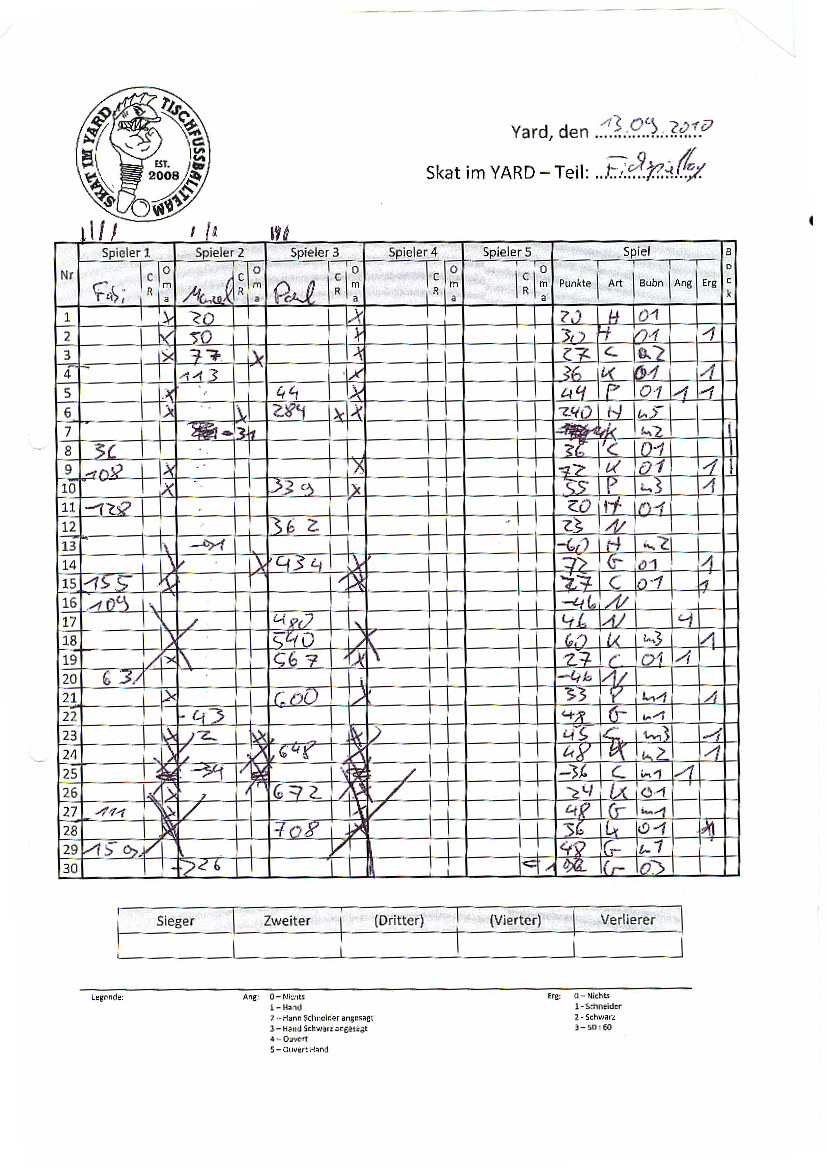 SKAT IM YARD TISCHFUSSBALLTEAM
EST.
2008
Yard, den 13.09.2010
Skat im YARD – Teil:
Nr Spieler 1 Spieler 2 Spieler 3 Spieler 4 Spieler 5 Spiel Bock
Fabi CR Oma Marcel CR Oma Paul CR Oma CR Oma CR Oma Punkte Art Bubn Ang Erg
1 X 20 X 20 H 01
2 X 50 X 30 H 01 1
3 X 77 X X 27 C
4 113 X 36 K 01 1
5 X 44 X 44 P 01 1 1
6 X X 284 X X 240 H m5
7 -31 K m2
8 36 36 C 01
9 108 X X 72 K 01 1
10 X 339 X 55 P m3 1
11 128 20 H 01
12 362 23 N
13 -60 H m2
14 X X 434 X 72 G 01 1
15 155 X X 27 C 01 1
16 109 -46 N
17 480 46 N 4
18 540 60 K m3 1
19 X 567 X 27 C 01 1
20 63 -46 N
21 X 600 X 33 P m1 1
22 -43 48 G m1
23 X 2 X X 45 m3 1
24 X X 648 X 48 m2 1
25 -34 -36 C m1 1
26 X 672 24 K 01
27 111 X 48 G m1
28 X 708 X 36 K 01
29 159 48 G m1
30 26 G 03
Sieger Zweiter (Dritter) (Vierter) Verlierer
Legende: Ang: 0 – Nichts Erg: 0 – Nichts
1 – Hand 1 - Schneider
2 – Hann Schneider angesagt 2 - Schwarz
3 – Hand Schwarz angesagt 3 – 60 : 60
4 – Ouvert
5 – Ouvert Hand